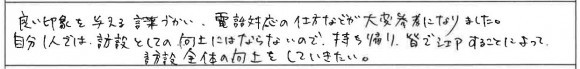 良い印象を与える言葉づかい、電話対応の仕方などが大変参考になりました。
自分1人では、訪設としての向上にはならないので、持ち帰り、皆で共有することによって、
訪設全体の向上をしていきたい。